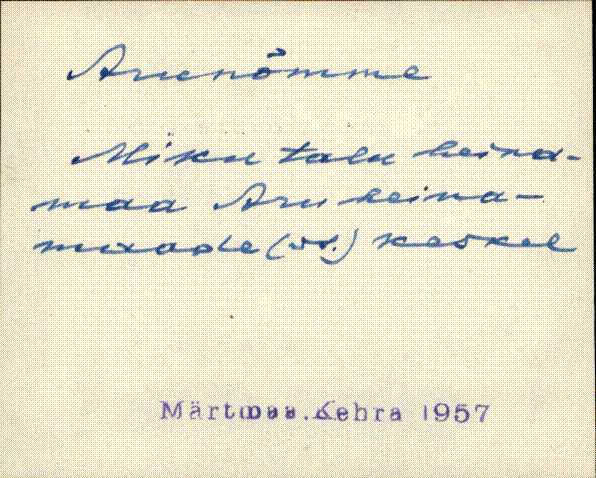 Arunõmme
Miku talu heina-
maa Aru heina-
maade (vt.) keskel
Kehra 1957